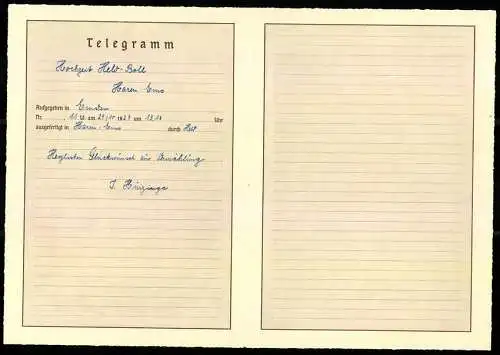 Telegramm
Hochzeit Held-Boll
Haren Ems
Aufgegeben in Emden
Nr. 11.W. am 29/10 1927 um Uhr
ausgefertigt in Haren-Ems durch Held
Herzlichen Glückwunsch zur Vermählung
J. Huizinga